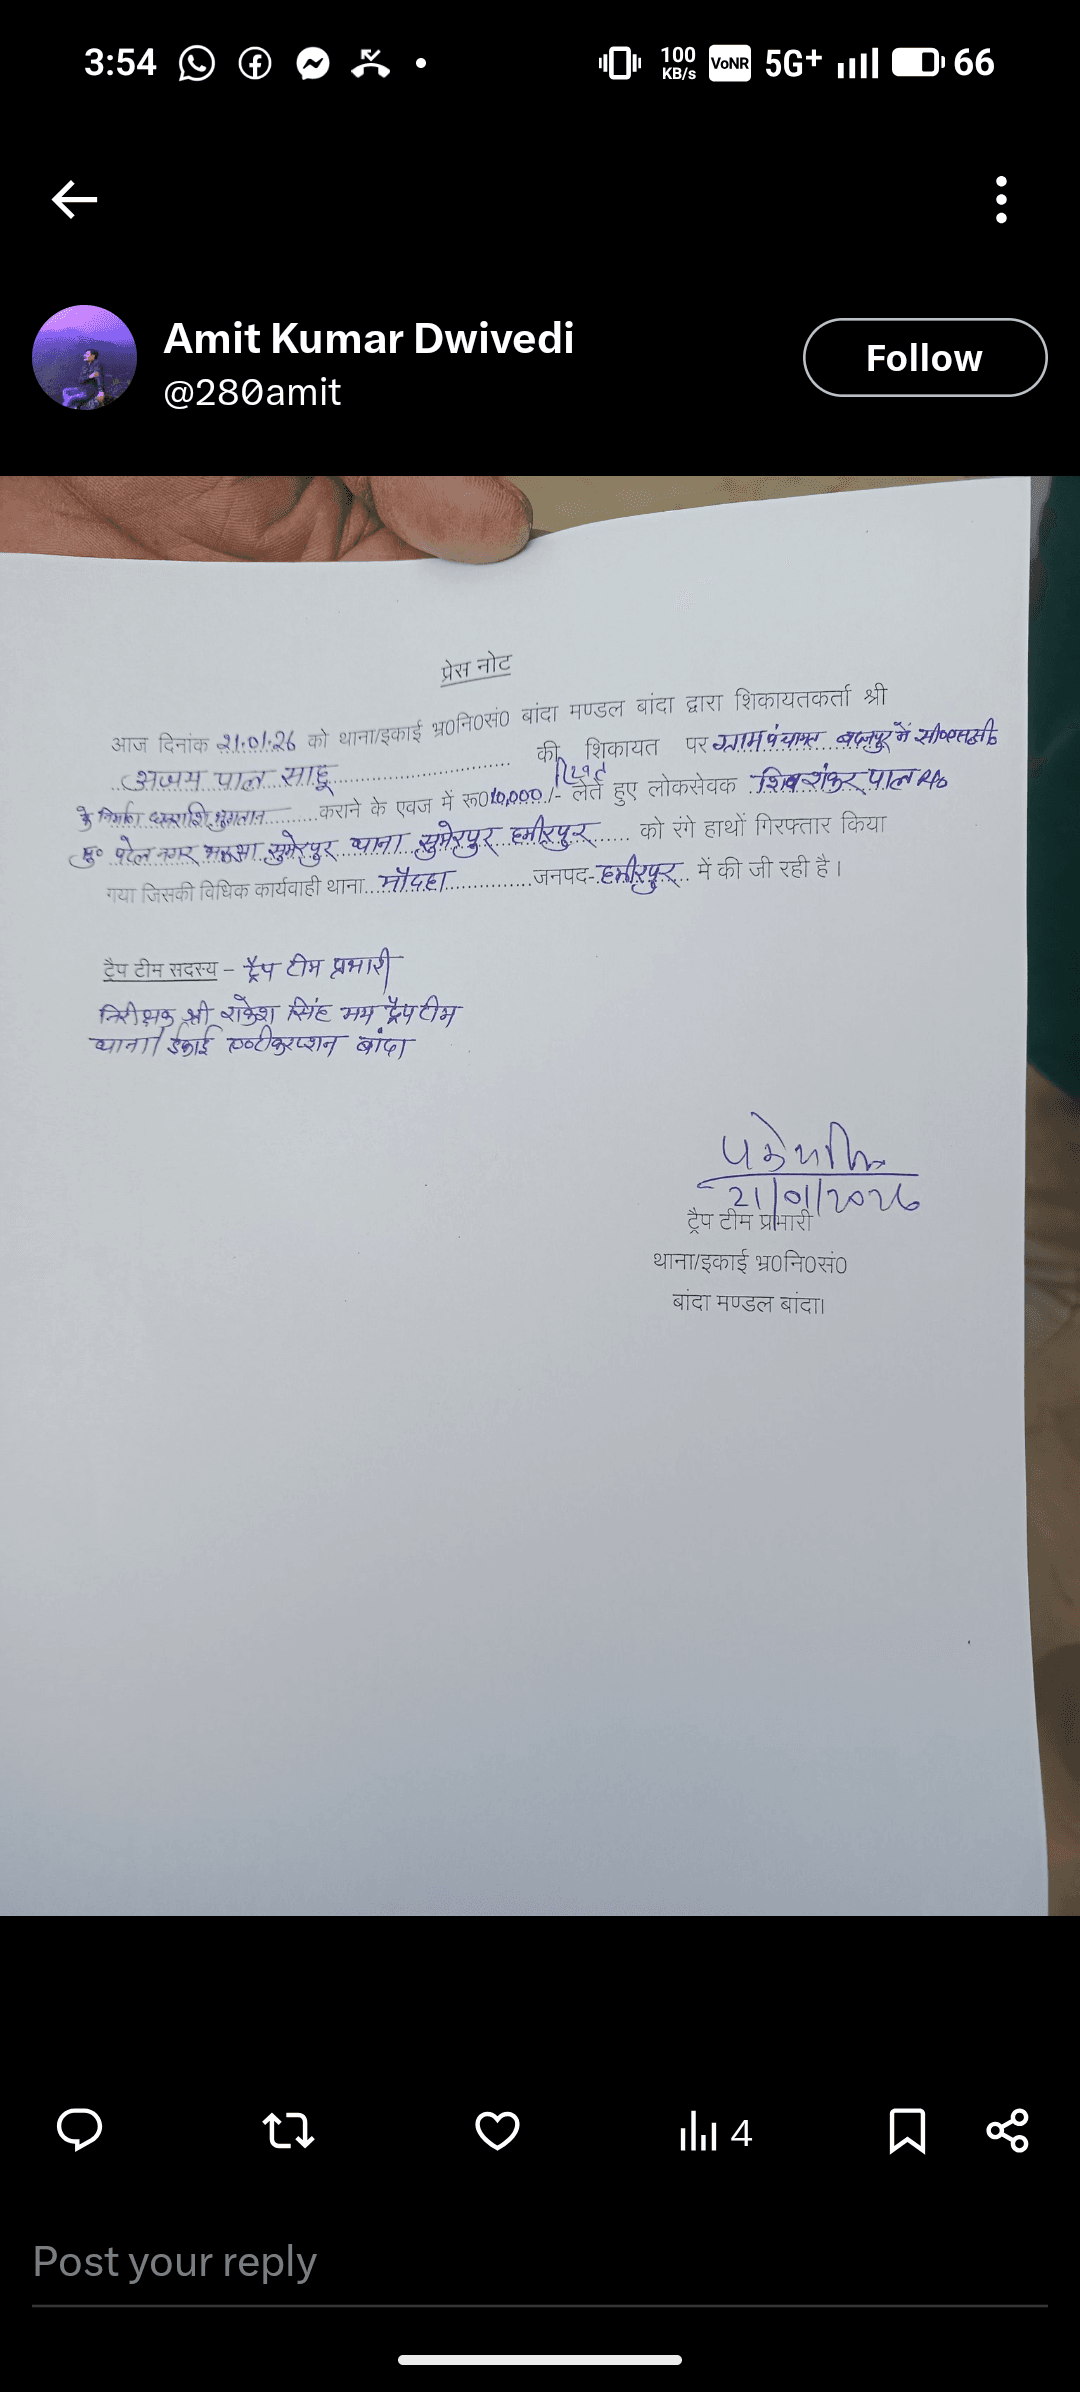 3:54
100 KB/s VoNR 5G+ 66
Amit Kumar Dwivedi
@280amit
Follow
प्रेस नोट
आज दिनांक 21.01.26 को थाना/इकाई भ्र0नि0सं0 बांदा मण्डल बांदा द्वारा शिकायतकर्ता श्री
अजय पाल साहू की शिकायत पर ग्राम पंचायत में
के निर्माण धनराशि भुगतान कराने के एवज में रू010,000/- रिश्वत लेते हुए लोकसेवक शिव शंकर पाल
पटेल नगर सुमेरपुर थाना सुमेरपुर हमीरपुर को रंगे हाथों गिरफ्तार किया
गया जिसकी विधिक कार्यवाही थाना मौदहा जनपद-हमीरपुर में की जी रही है।
ट्रैप टीम सदस्य – ट्रैप टीम प्रभारी
निरीक्षक श्री राकेश सिंह मय ट्रैप टीम
थाना/ईकाई एण्टीकरप्शन बांदा
21/01/2026
ट्रैप टीम प्रभारी
थाना/इकाई भ्र0नि0सं0
बांदा मण्डल बांदा।
4
Post your reply